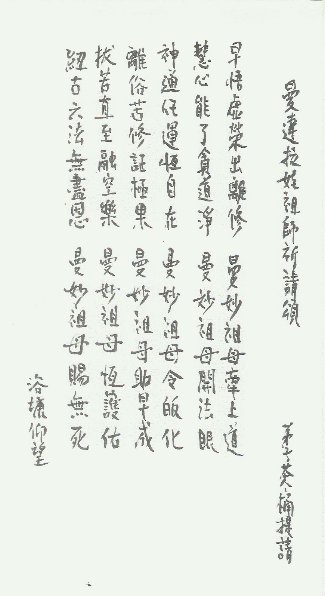 曼達拉娃祖師祈請頌
弟子茶桶拜請
早悟虛榮出離修 曼妙祖母牽上道
慧心能了貪道淨 曼妙祖母開法眼
神通任運恆自在 曼妙祖母令皈化
離俗苦修証極果 曼妙祖母助早成
拔苦直至融空樂 曼妙祖母恆護佑
紐古六法無盡恩 曼妙祖母賜無死
浴塘仰望